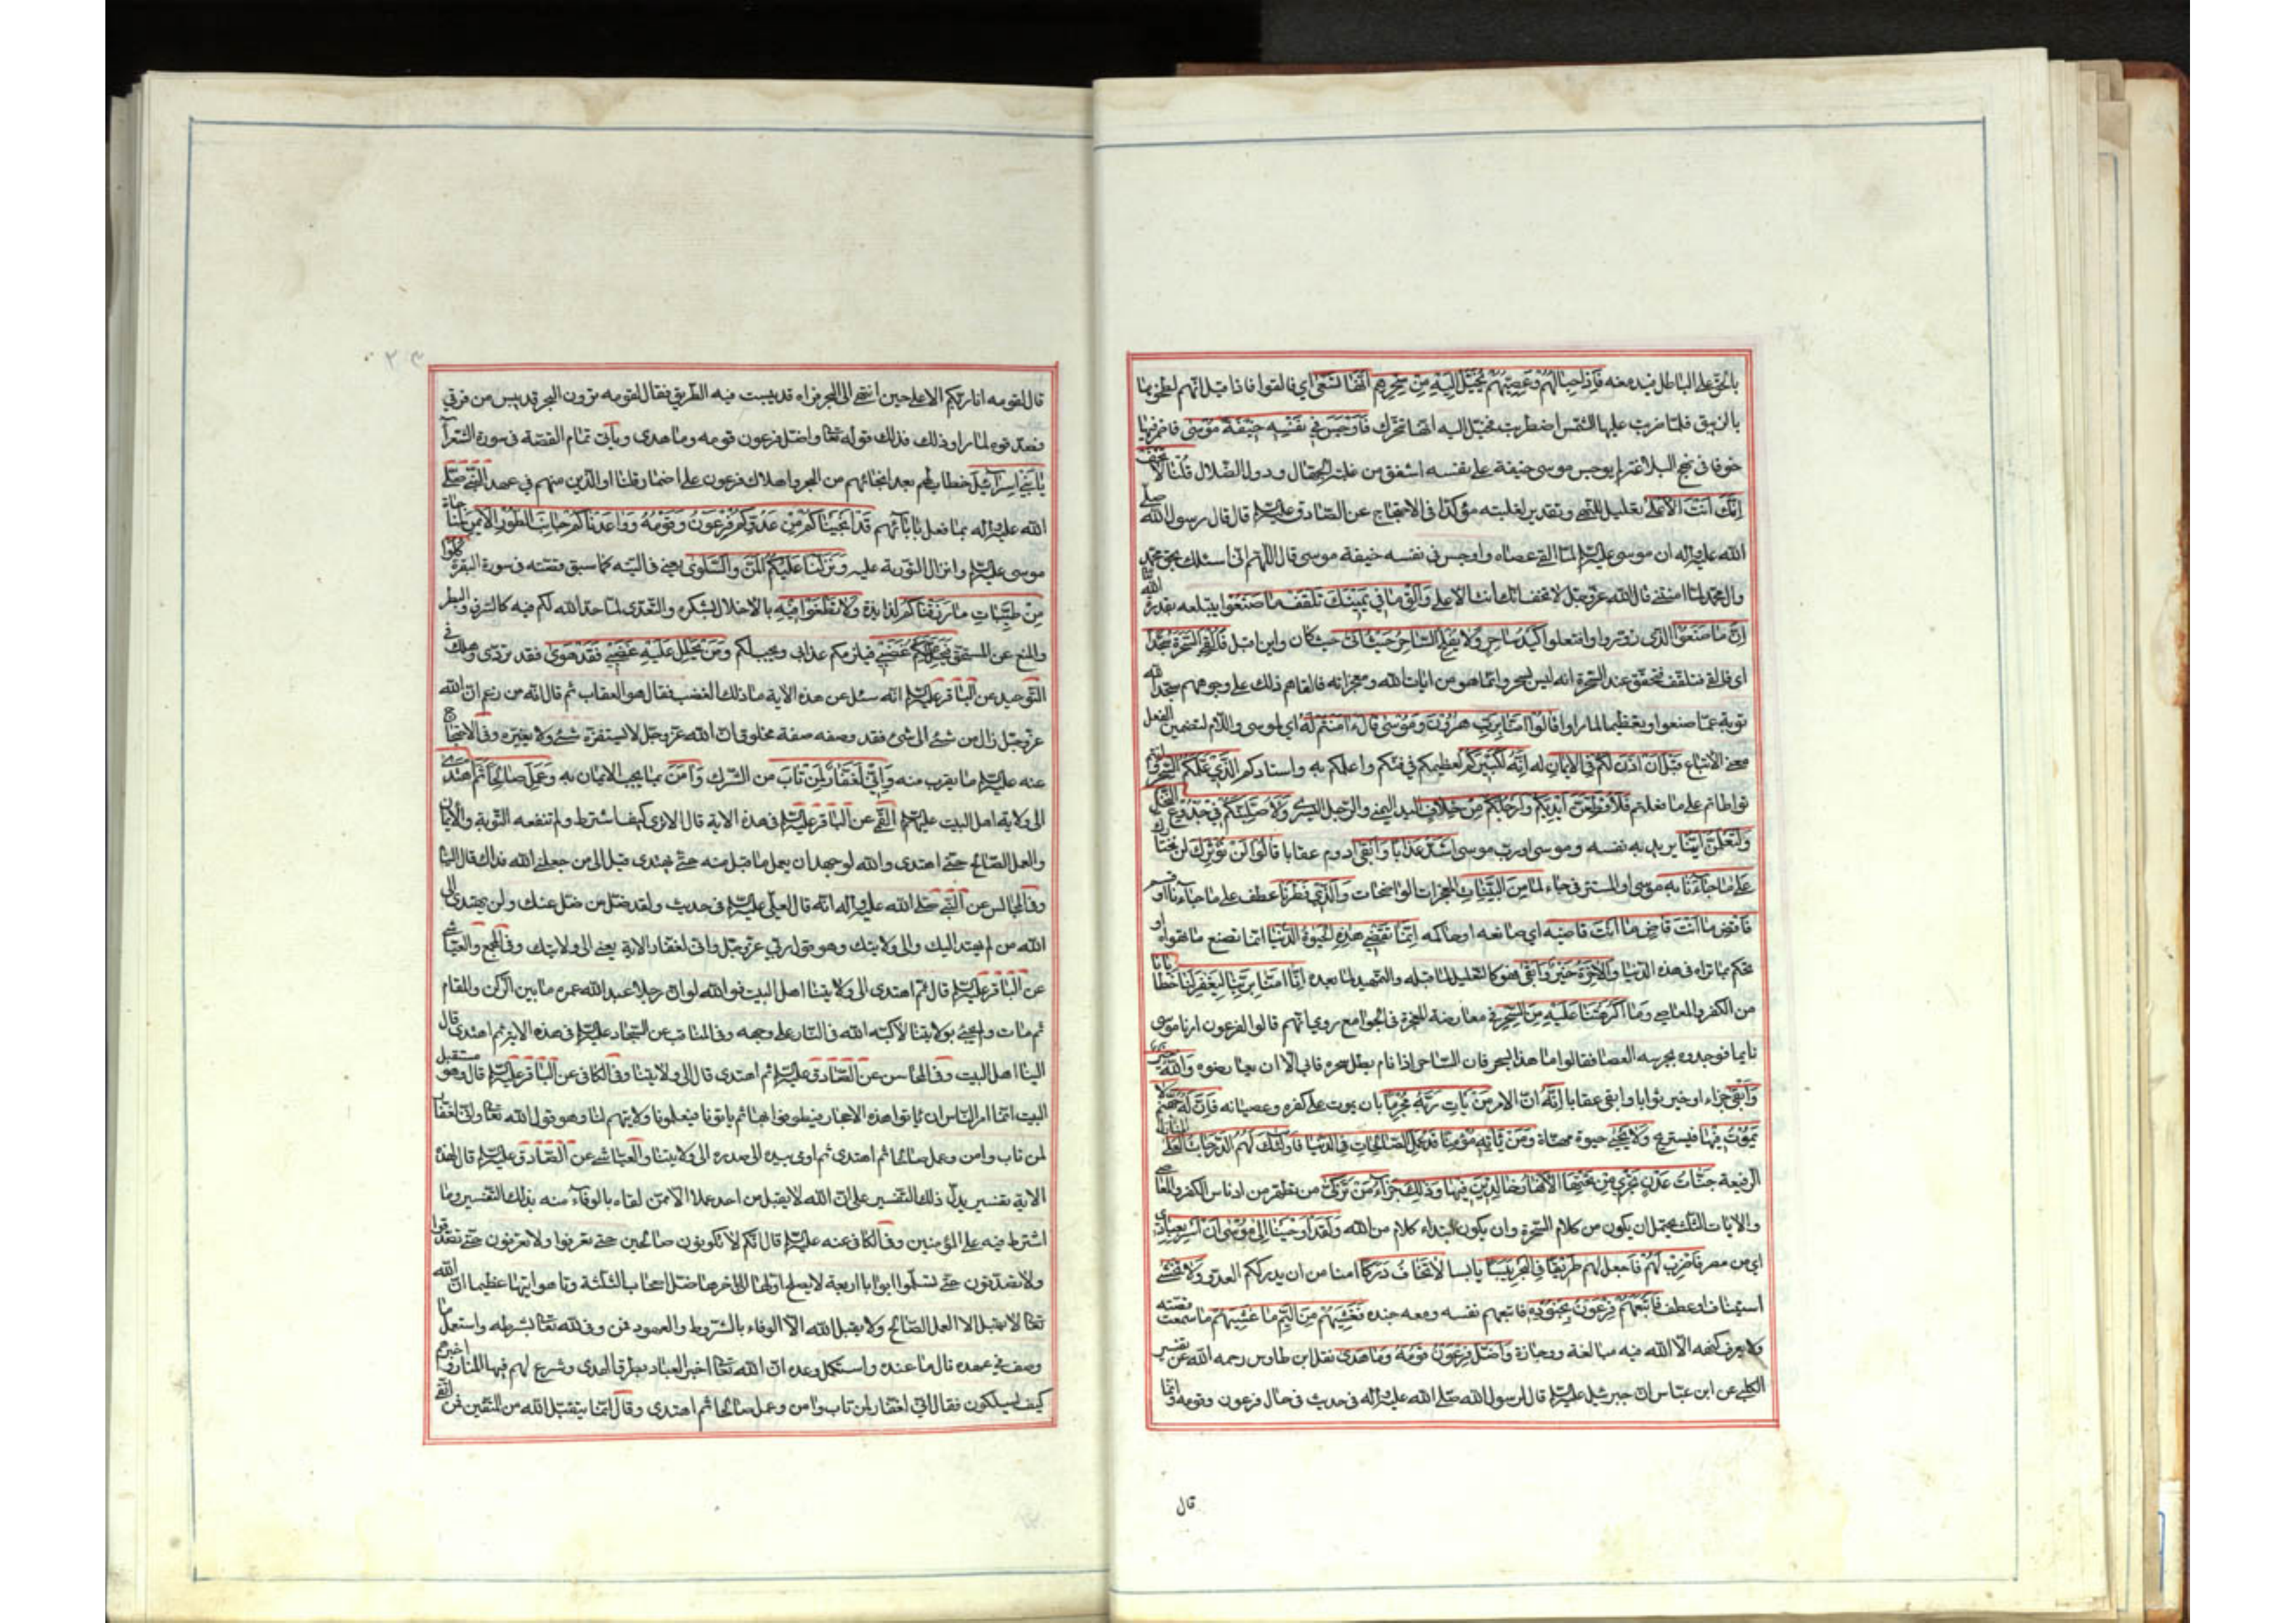 بالحق على الباطل فيدمغه فَإِذَا حِبَالُهُمْ وَعِصِيُّهُمْ يُخَيَّلُ إِلَيْهِ مِنْ سِحْرِهِمْ أَنَّهَا تَسْعَى أي فالقوا فاذا قيل انهم لطخوها
بالزيبق فلما ضربت عليها الشمس اضطربت فخيل اليه انها تتحرك فَأَوْجَسَ فِي نَفْسِهِ خِيفَةً مُوسَى فاضمر فيها
خوفا في نهج البلاغة لم يوجس موسى خيفة على نفسه اشفق من غلبة الجهال ودول الضلال قُلْنَا لَا تَخَفْ
إِنَّكَ أَنْتَ الْأَعْلَى تعليل للنهي وتقدير لغلبته مؤكدا في الاحتجاج عن الصادق عليه السلام قال قال رسول الله صلى
الله عليه وآله ان موسى عليه السلام لما القى عصاه واوجس في نفسه خيفة موسى قال اللهم اني اسئلك بحق محمد
وآل محمد لما امنتني قال الله عز وجل لا تخف انك انت الاعلى وَأَلْقِ مَا فِي يَمِينِكَ تَلْقَفْ مَا صَنَعُوا يبتلعه بقدرة الله
إِنَّ مَا صَنَعُوا الذي زوروا وافتعلوا كَيْدُ سَاحِرٍ وَلَا يُفْلِحُ السَّاحِرُ حَيْثُ أَتَى حيث كان واين اقبل فَأُلْقِيَ السَّحَرَةُ سُجَّدًا
اي فالقى فتلقف فتحقق عند السحرة انه ليس بسحر وانما هو من ايات الله ومعجزاته فالقاهم ذلك على وجوههم سجدا لله
توبة عما صنعوا وتعظيما لما راوا قَالُوا آمَنَّا بِرَبِّ هَرُونَ وَمُوسَى قَالَ ءَامَنْتُمْ لَهُ اي لموسى واللام لتضمين الفعل
معنى الاتباع قَبْلَ أَنْ آذَنَ لَكُمْ في الايمان له إِنَّهُ لَكَبِيرُكُمْ لعظيمكم في فنكم واعلمكم به واستادكم الَّذِي عَلَّمَكُمُ السِّحْرَ وانتم
تواطاتم على ما فعلتم فَلَأُقَطِّعَنَّ أَيْدِيَكُمْ وَأَرْجُلَكُمْ مِنْ خِلَافٍ اليد اليمنى والرجل اليسرى وَلَأُصَلِّبَنَّكُمْ فِي جُذُوعِ النَّخْلِ
وَلَتَعْلَمُنَّ أَيُّنَا يريد به نفسه وموسى او رب موسى أَشَدُّ عَذَابًا وَأَبْقَى ادوم عقابا قَالُوا لَنْ نُؤْثِرَكَ لن نختارك
عَلَى مَا جَاءَنَا به موسى او المستتر في جاء لما مِنَ الْبَيِّنَاتِ المعجزات الواضحات وَالَّذِي فَطَرَنَا عطف على ما جاءنا او قسم
فَاقْضِ مَا أَنْتَ قَاضٍ ما انت قاضيه اي صانعه او حاكمه إِنَّمَا تَقْضِي هَذِهِ الْحَيَوةَ الدُّنْيَا انما تصنع ما تهواه او
تحكم بما تراه في هذه الدنيا وَالْآخِرَةُ خَيْرٌ وَأَبْقَى فهو كالتعليل لما قبله والتمهيد لما بعده إِنَّا آمَنَّا بِرَبِّنَا لِيَغْفِرَ لَنَا خَطَايَانَا
من الكفر والمعاصي وَمَا أَكْرَهْتَنَا عَلَيْهِ مِنَ السِّحْرِ في معارضة المعجزة في الجوامع روي انهم قالوا لفرعون ارنا موسى
نايما فوجدوه يحرسه العصا فقالوا ما هذا بسحر فان الساحر اذا نام بطل سحره فابى الا ان يعارضوه وَاللَّهُ خَيْرٌ
وَأَبْقَى جزاء او خير ثوابا وابقى عقابا إِنَّهُ ان الامر مَنْ يَأْتِ رَبَّهُ مُجْرِمًا بان يموت على كفره وعصيانه فَإِنَّ لَهُ جَهَنَّمَ لَا
يَمُوتُ فِيهَا فيستريح وَلَا يَحْيَى حيوة مهناة وَمَنْ يَأْتِهِ مُؤْمِنًا قَدْ عَمِلَ الصَّالِحَاتِ في الدنيا فَأُولَئِكَ لَهُمُ الدَّرَجَاتُ الْعُلَى المنازل
الرفيعة جَنَّاتُ عَدْنٍ تَجْرِي مِنْ تَحْتِهَا الْأَنْهَارُ خَالِدِينَ فِيهَا وَذَلِكَ جَزَاءُ مَنْ تَزَكَّى من تطهر من ادناس الكفر والمعاصي
والايات الثلث يحتمل ان يكون من كلام السحرة وان يكون ابتداء كلام من الله وَلَقَدْ أَوْحَيْنَا إِلَى مُوسَى أَنْ أَسْرِ بِعِبَادِي
اي من مصر فَاضْرِبْ لَهُمْ فاجعل لهم طَرِيقًا فِي الْبَحْرِ يَبَسًا يابسا لَا تَخَافُ دَرَكًا امنا من ان يدرككم العدو وَلَا تَخْشَى
استيناف او عطف فَأَتْبَعَهُمْ فِرْعَوْنُ بِجُنُودِهِ فاتبعهم نفسه ومعه جنده فَغَشِيَهُمْ مِنَ الْيَمِّ مَا غَشِيَهُمْ ما سمعت قصته
ولا يعرف كنهه الا الله فيه مبالغة ووجازة وَأَضَلَّ فِرْعَوْنُ قَوْمَهُ وَمَا هَدَى نقل ابن طاوس رحمه الله عن تفسير
الكلبي عن ابن عباس ان جبرئيل عليه السلام قال لرسول الله صلى الله عليه وآله في حديث في حال فرعون وقومه وانما
قال
قال لقومه انا ربكم الاعلى حين انتهى الى البحر فراه قد يبست فيه الطريق فقال لقومه ترون البحر قد يبس من فرقي
فصدقوه لما راوا ذلك فذلك قوله تعا واضل فرعون قومه وما هدى ويأتي تمام القصة في سورة الشعرآ
يَا بَنِي إِسْرَآئِيلَ خطاب لهم بعد انجائهم من البحر واهلاك فرعون على اضمار قلنا او للذين منهم في عهد النبي صلى
الله عليه وآله بما فعل بآبائهم قَدْ أَنْجَيْنَاكُمْ مِنْ عَدُوِّكُمْ فرعون وقومه وَوَاعَدْنَاكُمْ جَانِبَ الطُّورِ الْأَيْمَنَ لمناجاة
موسى عليه السلام وانزال التورية عليه وَنَزَّلْنَا عَلَيْكُمُ الْمَنَّ وَالسَّلْوَى يعني في التيه كما سبق قصته في سورة البقرة كُلُوا
مِنْ طَيِّبَاتِ مَا رَزَقْنَاكُمْ لذايذه وَلَا تَطْغَوْا فِيهِ بالاخلال بشكره والتعدي لما حد الله لكم فيه كالسرف والبطر
والمنع عن المستحق فَيَحِلَّ عَلَيْكُمْ غَضَبِي فيلزمكم عذابي ويجب لكم وَمَنْ يَحْلِلْ عَلَيْهِ غَضَبِي فَقَدْ هَوَى فقد تردى وهلك في
التوحيد عن الباقر عليه السلام انه سئل عن هذه الاية ما ذلك الغضب فقال هو العقاب ثم قال انه من زعم ان الله
عز وجل زال من شئ الى شئ فقد وصفه صفة مخلوق ان الله عز وجل لا يستفزه شئ ولا يغيره وفي الاحتجاج
عنه عليه السلام ما يقرب منه وَإِنِّي لَغَفَّارٌ لِمَنْ تَابَ من الشرك وَآمَنَ بما يجب الايمان به وَعَمِلَ صَالِحًا ثُمَّ اهْتَدَى
الى ولاية اهل البيت عليهم السلام القمي عن الباقر عليه السلام في هذه الاية قال الا ترى كيف اشترط ولم تنفعه التوبة والايمان
والعمل الصالح حتى اهتدى والله لو جهد ان يعمل ما قبل منه حتى يهتدى قيل الى من جعلني الله فداك قال الينا
وفي المجالس عن النبي صلى الله عليه وآله انه قال لعلي عليه السلام في حديث ولقد ضل من ضل عنك ولن يهتدى الى
الله من لم يهتد اليك والى ولايتك وهو قول ربي عز وجل واني لغفار الاية يعني الى ولايتك وفي المجمع والعياشي
عن الباقر عليه السلام قال ثم اهتدى الى ولايتنا اهل البيت فوالله لو ان رجلا عبد الله عمره ما بين الركن والمقام
ثم مات ولم يجئ بولايتنا لأكبه الله في النار على وجهه وفي المناقب عن السجاد عليه السلام في هذه الاية ثم اهتدى قال
الينا اهل البيت وفي المحاسن عن الصادق عليه السلام ثم اهتدى قال الى ولايتنا وفي الكافي عن الباقر عليه السلام قال وهو مستقبل
البيت انما امر الناس ان يأتوا هذه الاحجار فيطوفوا بها ثم يأتونا فيعلمونا ولايتهم لنا وهو قول الله تعا واني لغفار
لمن تاب وامن وعمل صالحا ثم اهتدى ثم اومى بيده الى صدره الى ولايتنا والعياشي عن الصادق عليه السلام قال لهذه
الاية تفسير يدل ذلك التفسير على ان الله لا يقبل من احد عملا الا ممن لقاه بالوفآء منه بذلك التفسير وما
اشترط فيه على المؤمنين وفي الكافي عنه عليه السلام قال انكم لا تكونون صالحين حتى تعرفوا ولا تعرفون حتى تصدقوا
ولا تصدقون حتى تسلموا ابوابا اربعة لا يصلح اولها الا بآخرها ضل اصحاب الثلثة وتاهوا تيها عظيما ان الله
تعا لا يقبل الا العمل الصالح ولا يقبل الله الا الوفاء بالشروط والعهود فمن وفى لله تعا بشرطه واستعمل ما
وصف في عهده نال ما عنده واستكمل وعده ان الله تعا اخبر العباد بطرق الهدى وشرع لهم فيها المنار واخبرهم
كيف يسلكون فقال اني لغفار لمن تاب وامن وعمل صالحا ثم اهتدى وقال انما يتقبل الله من المتقين فمن اتقى